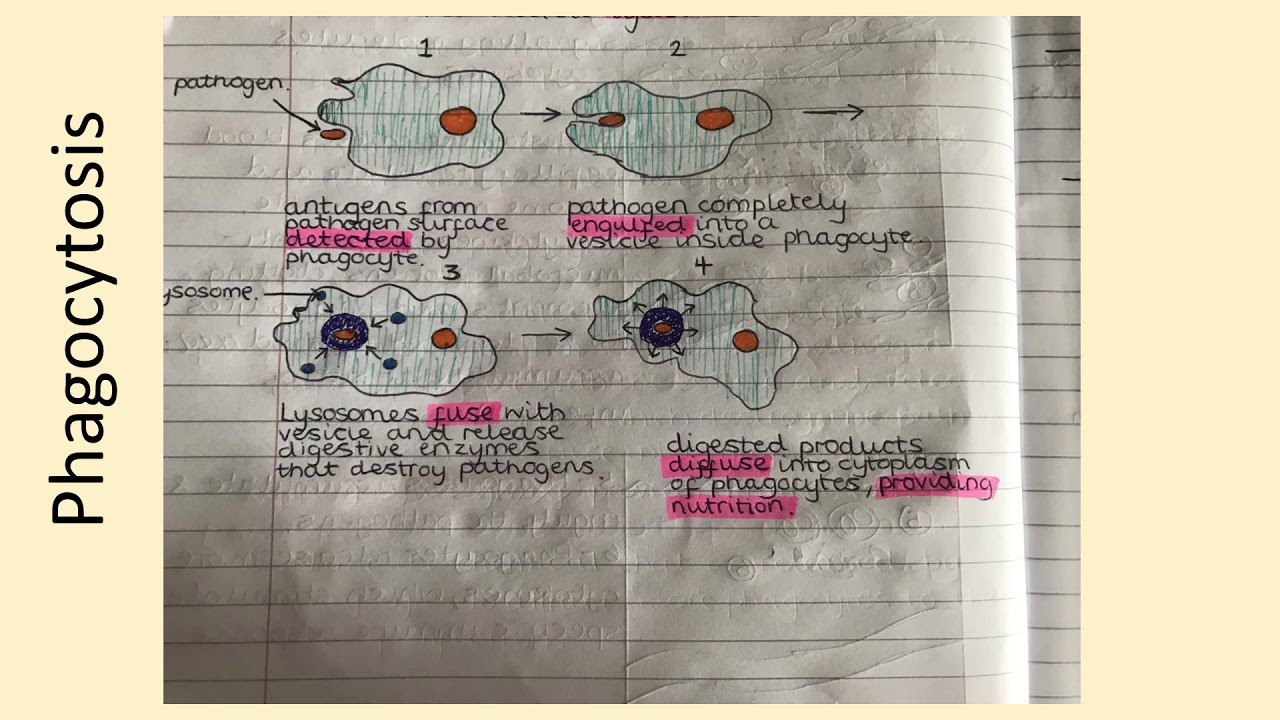 Phagocytosis
1
2
pathogen.
antigens from
pathogen surface
detected by
phagocyte.
pathogen completely
engulfed into a
vesicle inside phagocyte.
3
4
ysosome.
Lysosomes fuse with
vesicle and release
digestive enzymes
that destroy pathogens.
digested products
diffuse into cytoplasm
of phagocytes, providing
nutrition.